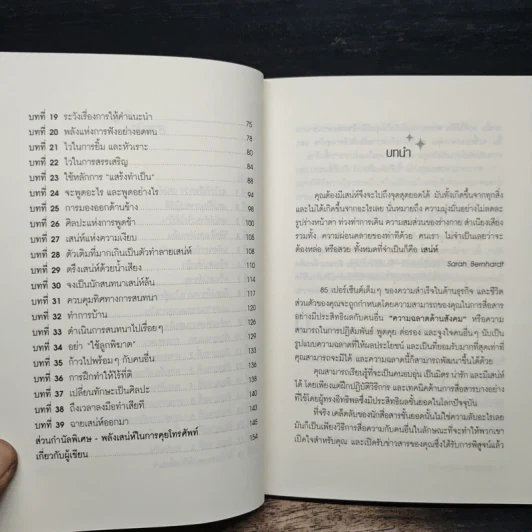 บทที่ 19 ระวังเรื่องการให้คำแนะนำ 75
บทที่ 20 พลังแห่งการฟังอย่างอดทน 78
บทที่ 21 ไวในการยิ้ม และหัวเราะ 80
บทที่ 22 ไวในการสรรเสริญ 84
บทที่ 23 ใช้หลักการ "แสร้งทำเป็น" 88
บทที่ 24 จะพูดอะไร และพูดอย่างไร 94
บทที่ 25 การมองออกด้านข้าง 98
บทที่ 26 ศิลปะแห่งการพูดช้า 100
บทที่ 27 เสน่ห์แห่งความเงียบ 105
บทที่ 28 ตัวเติมที่มากเกินเป็นตัวทำลายเสน่ห์ 108
บทที่ 29 ตรึงเสน่ห์ด้วยน้ำเสียง 110
บทที่ 30 จงเป็นนักสนทนาเสน่ห์ล้น 114
บทที่ 31 ควบคุมทิศทางการสนทนา 117
บทที่ 32 ทำการบ้าน 121
บทที่ 33 ดำเนินการสนทนาไปเรื่อยๆ
บทที่ 34 อย่า "ใช้ลูกพิฆาต"
บทที่ 35 ก้าวไปพร้อมๆ กับคนอื่น
บทที่ 36 การฝึกทำให้ไร้ที่ติ
บทที่ 37 เปลี่ยนทักษะเป็นศิลปะ
บทที่ 38 ถึงเวลาลงมือทำเสียที
บทที่ 39 ฉายเสน่ห์ออกมา
ส่วนกำนัลพิเศษ - พลังเสน่ห์ในการคุยโทรศัพท์ 154
เกี่ยวกับผู้เขียน
บทนำ
คุณต้องมีเสน่ห์จึงจะไปถึงจุดสุดยอดได้ มันทั้งเกิดขึ้นจากทุกสิ่ง
และไม่ได้เกิดขึ้นจากอะไรเลย นั่นหมายถึง ความมุ่งมั่นอย่างไม่ลดละ
รูปร่างหน้าตา ท่วงท่าการเดิน ความสมส่วนของร่างกาย สำเนียงเสียง
รวมทั้ง ความผ่อนคลายของท่าทีด้วย คนเรา ไม่จำเป็นเลยว่าจะ
ต้องหล่อ หรือสวย ทั้งหมดที่จำเป็นก็คือ เสน่ห์
Sarah Bernhardt
85 เปอร์เซ็นต์เต็มๆ ของความสำเร็จในด้านธุรกิจ และชีวิต
ส่วนตัวของคุณจะถูกกำหนดโดยความสามารถของคุณในการสื่อสาร
อย่างมีประสิทธิผลกับคนอื่น "ความฉลาดด้านสังคม" หรือความ
สามารถในการปฏิสัมพันธ์ พูดคุย ต่อรอง และจูงใจคนอื่นๆ นับเป็น
รูปแบบความฉลาดที่ให้ผลประโยชน์ และเป็นที่ยอมรับมากที่สุดเท่าที่
คุณสามารถจะมีได้ และความฉลาดนี้ก็สามารถพัฒนาขึ้นได้ด้วย
คุณสามารถเรียนรู้ที่จะเป็นคนอบอุ่น เป็นมิตร น่ารัก และมีเสน่ห์
ได้ โดยเพียงแค่ฝึกปฏิบัติวิธีการ และเทคนิคด้านการสื่อสารบางอย่าง
ที่ใช้โดยผู้ทรงอิทธิพลซึ่งมีประสิทธิผลชั้นยอดในโลกปัจจุบัน
ที่จริง เคล็ดลับของนักสื่อสารชั้นยอดนั้นไม่ใช่ความลับอะไรเลย
มันก็เป็นเพียงวิธีการสื่อความกับคนอื่นในลักษณะที่จะทำให้พวกเขา
เปิดใจสำหรับคุณ และเปิดรับข่าวสารของคุณซึ่งได้รับการพิสูจน์แล้ว